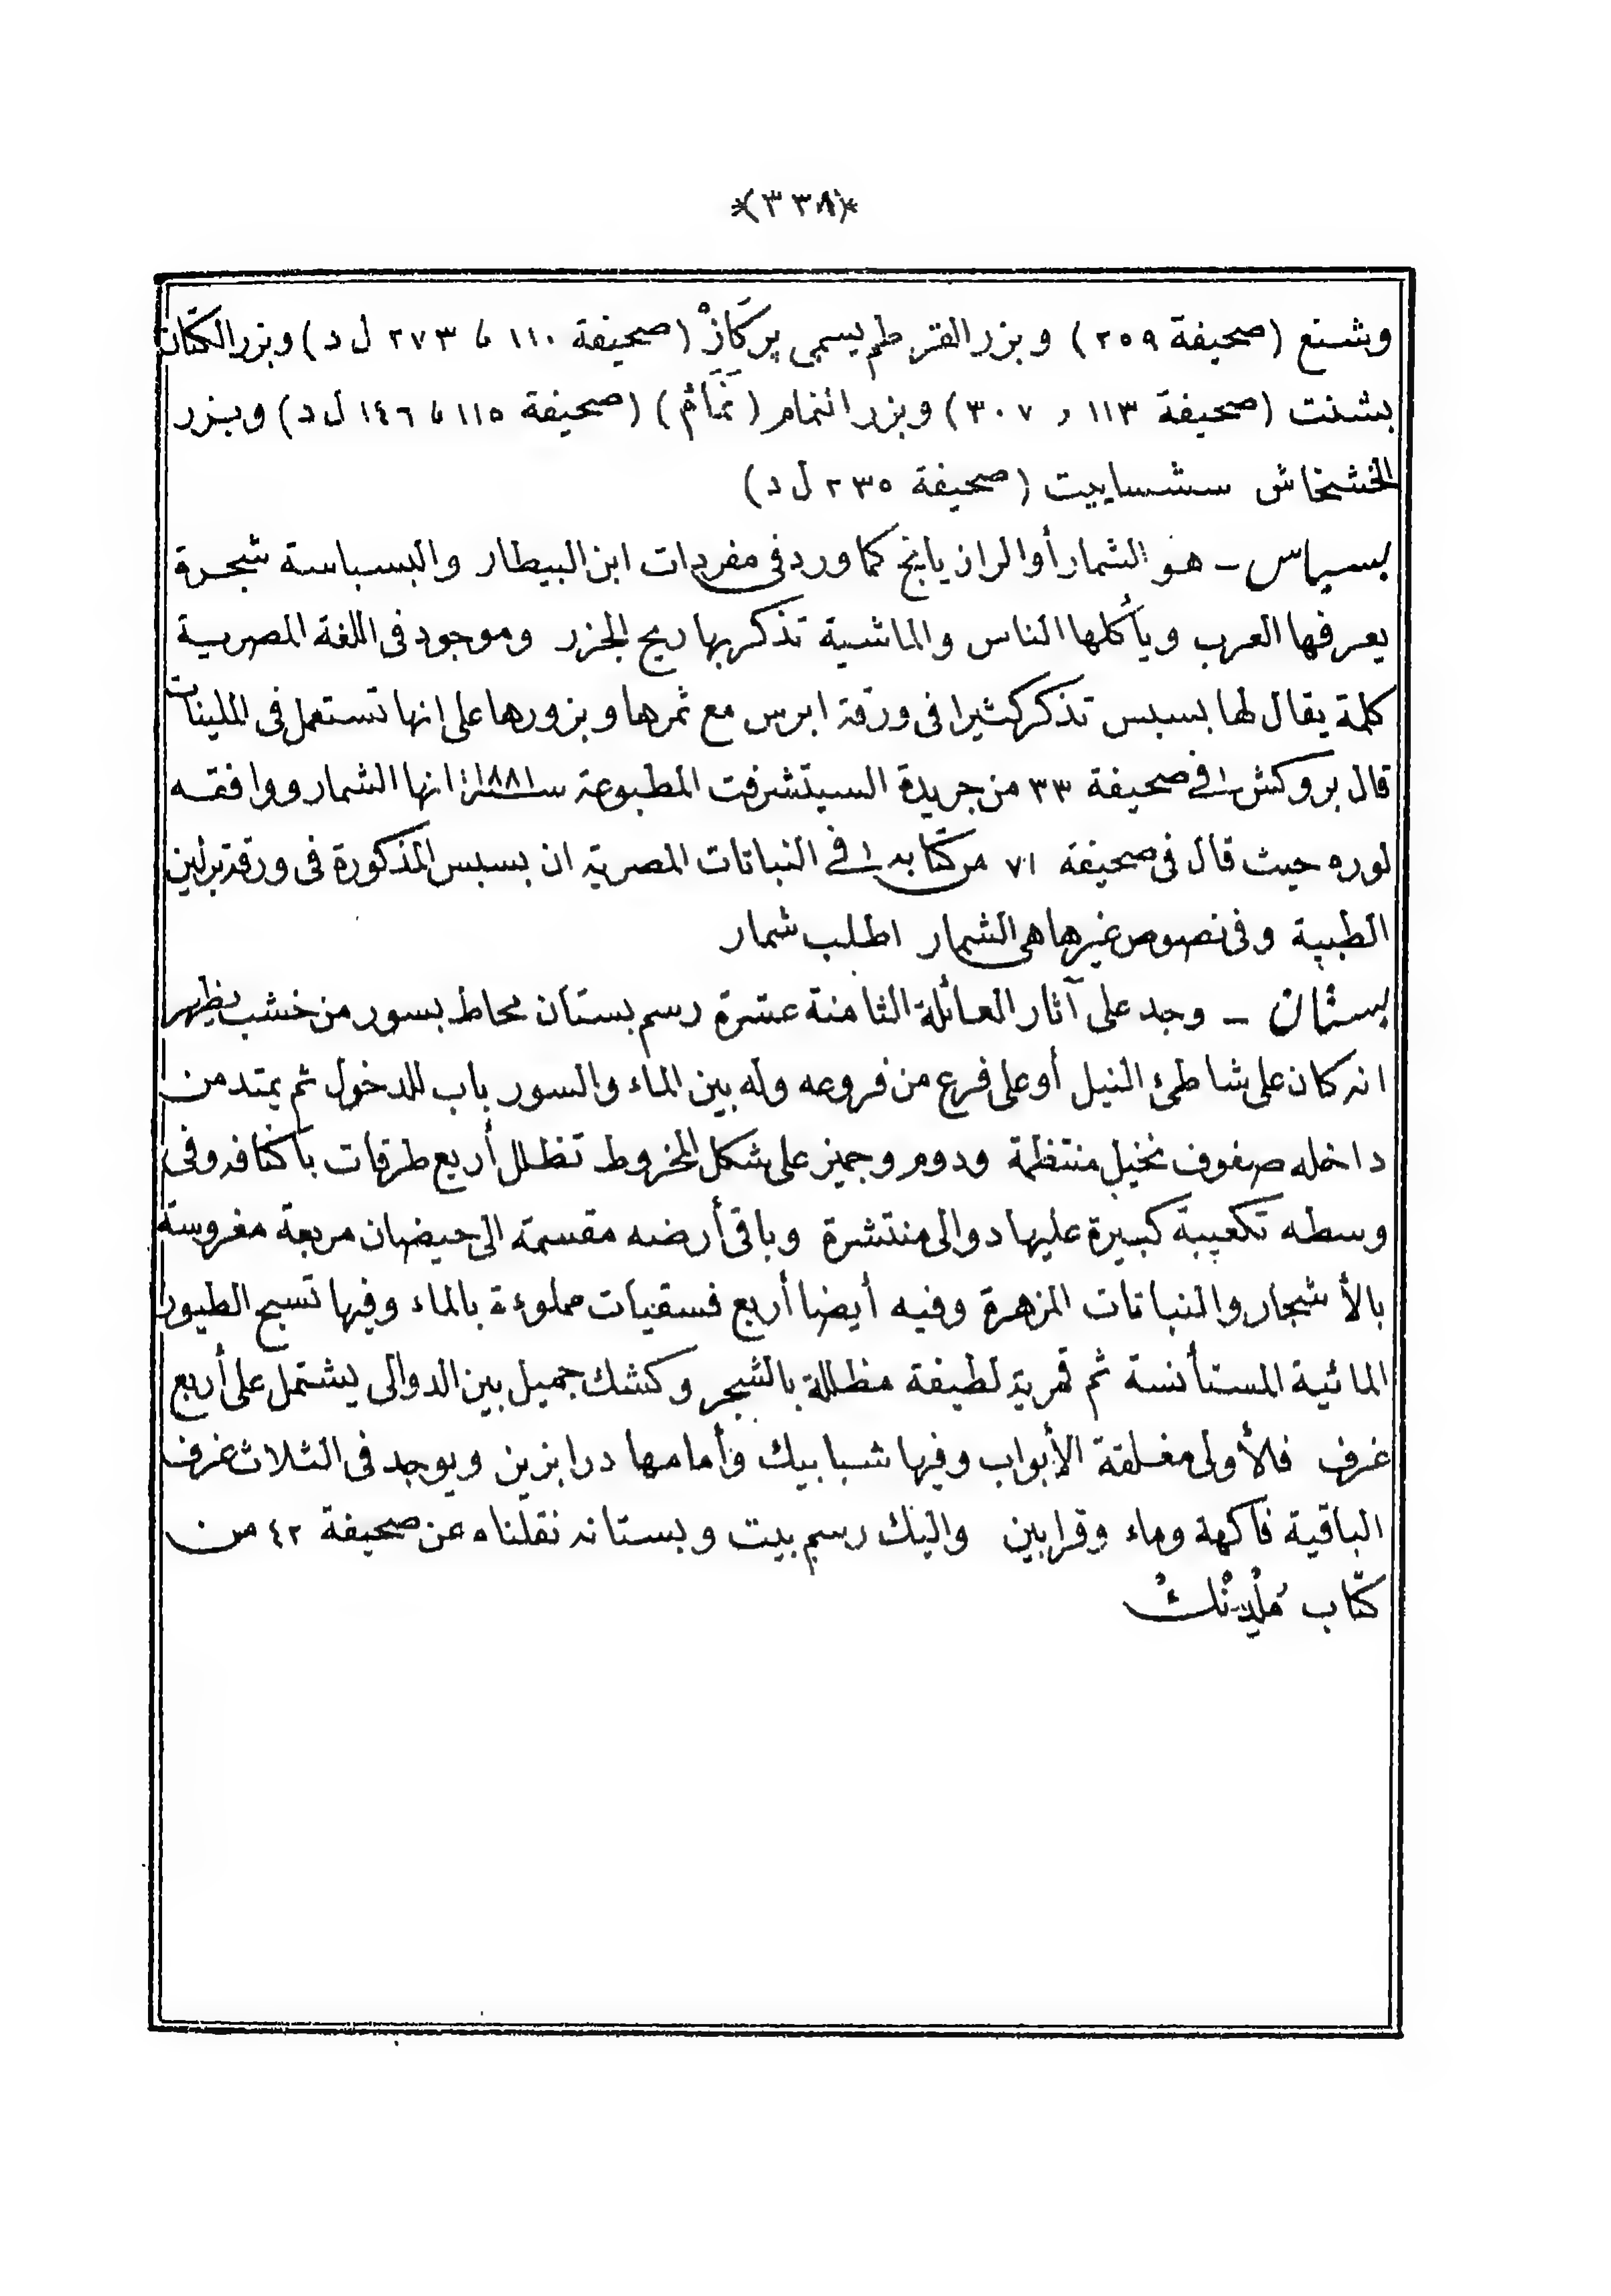 *(٣٣٨)*
وشنع (صحيفة ٢٥٩) وبزر القرطم يسمى پرکَازْ (صحيفة ١١٠ ، ٢٧٣ ل د) وبزر الكتّان
بشنت (صحيفة ١١٣ , ٣٠٧) وبزر النمام (نَمَامْ) (صحيفة ١١٥ ، ١٤٦ ل د) وبزر
الخشخاش سشساييت (صحيفة ٢٣٥ ل د)
بسباس – هو الشمار أو الرازيانج كما ورد في مفردات ابن البيطار والبسباسة شجرة
يعرفها العرب ويأكلها الناس والماشية تذكر بها ريح الجزر وموجود في اللغة المصرية
كلمة يقال لها بسبس تذكر كثيرا فى ورقة ابرس مع ثمرها وبزورها على انها تستعمل فى الملينات
قال بروكش فى صحيفة ٣٣ من جريدة السيتشرفت المطبوعة سنة ١٨٨١ انها الشمار ووافقه
لوره حيث قال فى صحيفة ٧١ من كتابه فى النباتات المصرية ان بسبس المذكورة فى ورقة برلين
الطبية وفى نصوص غيرها هى الشمار اطلب شمار
بستان – وجد على آثار العائلة الثامنة عشرة رسم بستان محاط بسور من خشب يظهر
انه كان على شاطئ النيل أو على فرع من فروعه وله بين الماء والسور باب للدخول ثم يمتد من
داخله صفوف نخيل منتظمة ودوم وجميز على شكل المخروط تظلل أربع طرقات بأكنافه وفى
وسطه تكعيبة كبيرة عليها دوالى منتشرة وباقى أرضه مقسمة الى حيضان مربعة مغروسة
بالأشجار والنباتات المزهرة وفيه أيضا أربع فسقيات مملوءة بالماء وفيها تسبح الطيور
المائية المستأنسة ثم قمرية لطيفة مظللة بالشجر وكشك جميل بين الدوالى يشتمل على أربع
غرف فالأولى مغلقة الأبواب وفيها شبابيك وأمامها درابزين ويوجد فى الثلاث غرف
الباقية فاكهة وماء وقرابين واليك رسم بيت وبستانه نقلناه عن صحيفة ٤٢ من
كتاب